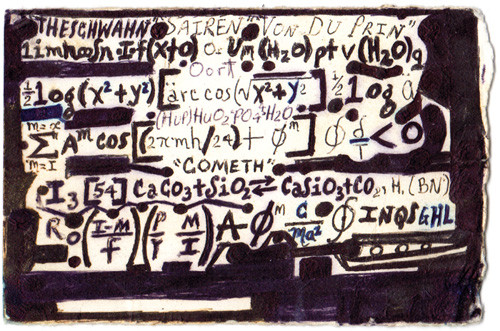 THESCHWAHN "SAIREN" VON DU PRIN"
limh∞)n If(x+0) Or Um(H₂O) ptv(H₂O)g
Oort
½ log(x²+y²) [arc cos(√x²+y² ½ log
(HUP)HUO₂·PO₄·H₂O
Σ Aᵐ cos [(2πmh/24)+ φᵐ] ∮ < 0
m=I
"COMETH"
I₃ [54] CaCO₃+SiO₂⇄CaSiO₃+CO₂, H, (BN)
R₀ (I-M/f) (P/r M/I) A φᵐ C/ma² ∮ INQSGHL